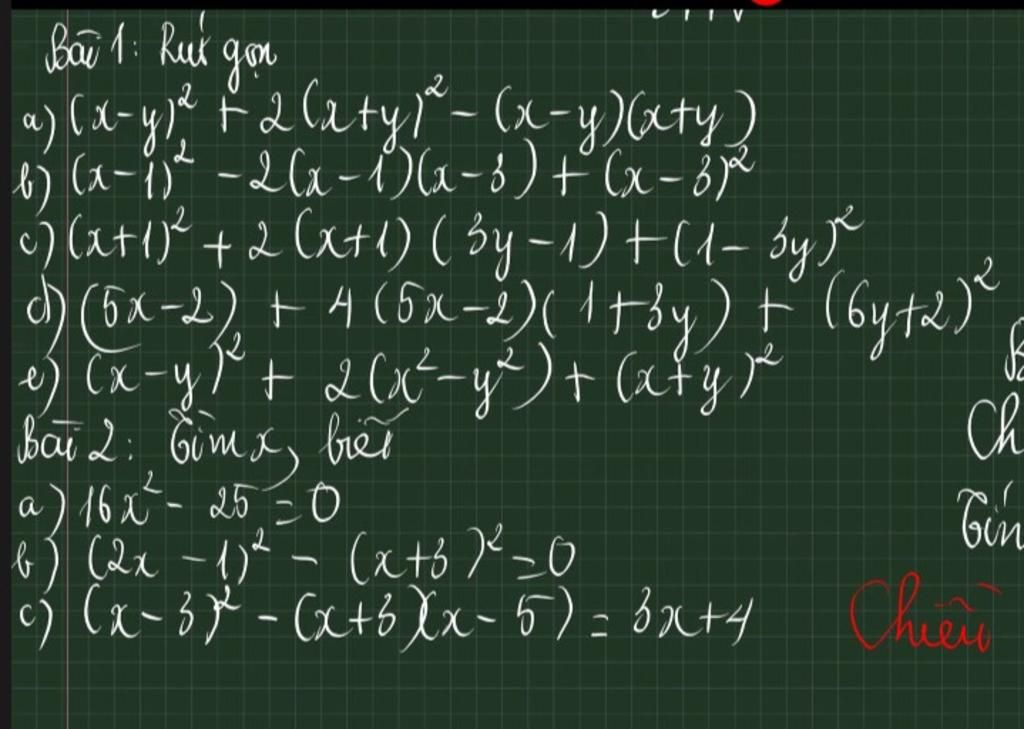 Bài 1: Rút gọn
a) (x-y)² + 2(x+y)² - (x-y)(x+y)
b) (x-1)² - 2(x-1)(x-3) + (x-3)²
c) (x+1)² + 2(x+1)(3y-1) + (1-3y)²
d) (5x-2) + 4(5x-2)(1+3y) + (6y+2)²
e) (x-y)² + 2(x²-y²) + (x+y)²
Bài 2: Tìm x, biết
a) 16x² - 25 = 0
b) (2x-1)² - (x+3)² = 0
c) (x-3)² - (x+3)(x-5) = 3x+4
B
Ch
Tín
Chiều